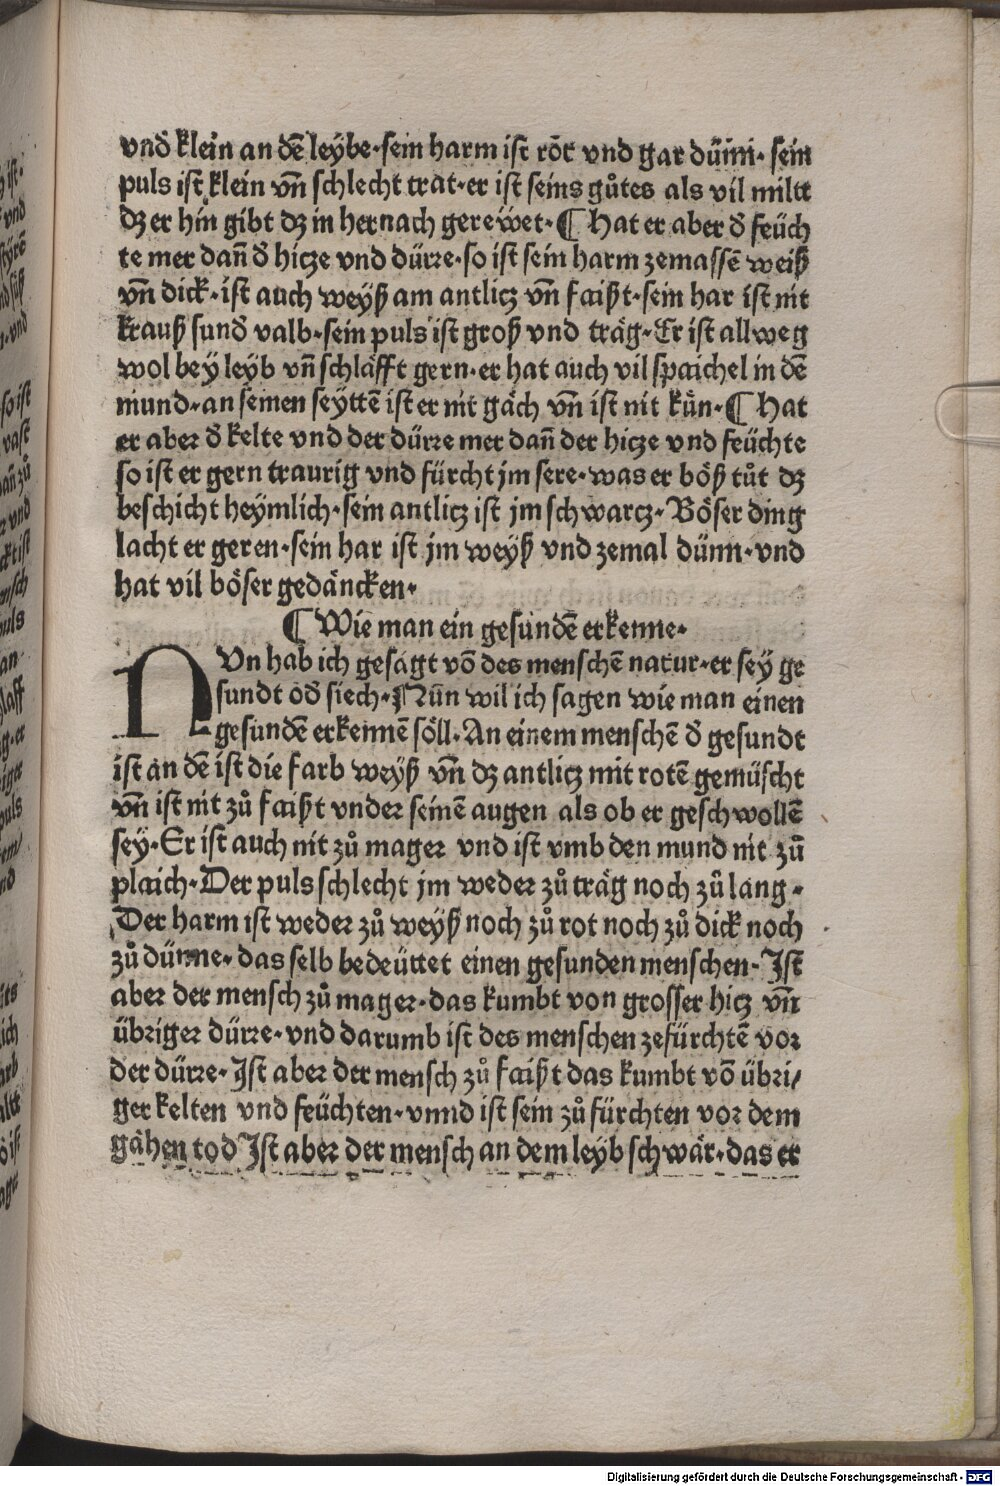 vnd̛ klein an dē leybe·sein harm ist rōt vnd gar dünn·sein
puls ist klein vn̄ schlecht trat·er ist seins gůtes als vil miltt
dz er hin gibt dz in hernach gereẅet·¶ Hat er aber d̛ feüch
te mer dan̄ d̛ hicze vnd dürre·so ist sein harm zemassē weiß
vn̄ dick·ist auch weyß am antlicz vn̄ faißt·sein har ist nit
krauß sund̛ valb·sein puls ist groß vnd träg·Er ist allweg
wol bey leyb vn̄ schläfft gern·er hat auch vil spaichel in dē
mund·an seinen seyttē ist er nit gäch vn̄ ist nit kün·¶ Hat
er aber d̛ kelte vnd der dürre mer dan̄ der hicze vnd feüchte
so ist er gern traurig vnd fürcht jm sere·was er böß tůt dz
beschicht heymlich·sein antlicz ist jm schwarcz·Böser ding
lacht er geren·sein har ist jm weyß vnd zemal dünn·vnd
hat vil böser gedäncken·
¶ Wie man ein gesundē erkenne·
NVn hab ich gesagt vō des menschē natur·er sey ge
sundt od̛ siech·Nün wil ich sagen wie man einen
gesundē erkennē söll·An einem menschē d̛ gesundt
ist an dē ist die farb weyß vn̄ dz antlicz mit rotē gemüscht
vn̄ ist nit zů faißt vnder seinē augen als ob er geschwollē
sey·Er ist auch nit zů mager vnd ist vmb den mund nit zů
plaich·Der puls schlecht jm weder zů träg noch zů lang·
Der harm ist weder zů weyß noch zů rot noch zů dick noch
zů dünne·das selb bedeüttet einen gesunden menschen·Ist
aber der mensch zů mager·das kumbt von grosser hicz vn̄
übriger dürre·vnd darumb ist des menschen zefürchtē vor
der dürre·Ist aber der mensch zů faißt das kumbt vō übri/
ger kelten vnd feüchten·vnnd ist sein zů fürchten vor dem
gähen tod Ist aber der mensch an dem leyb schwär·das er
Digitalisierung gefördert durch die Deutsche Forschungsgemeinschaft - DFG